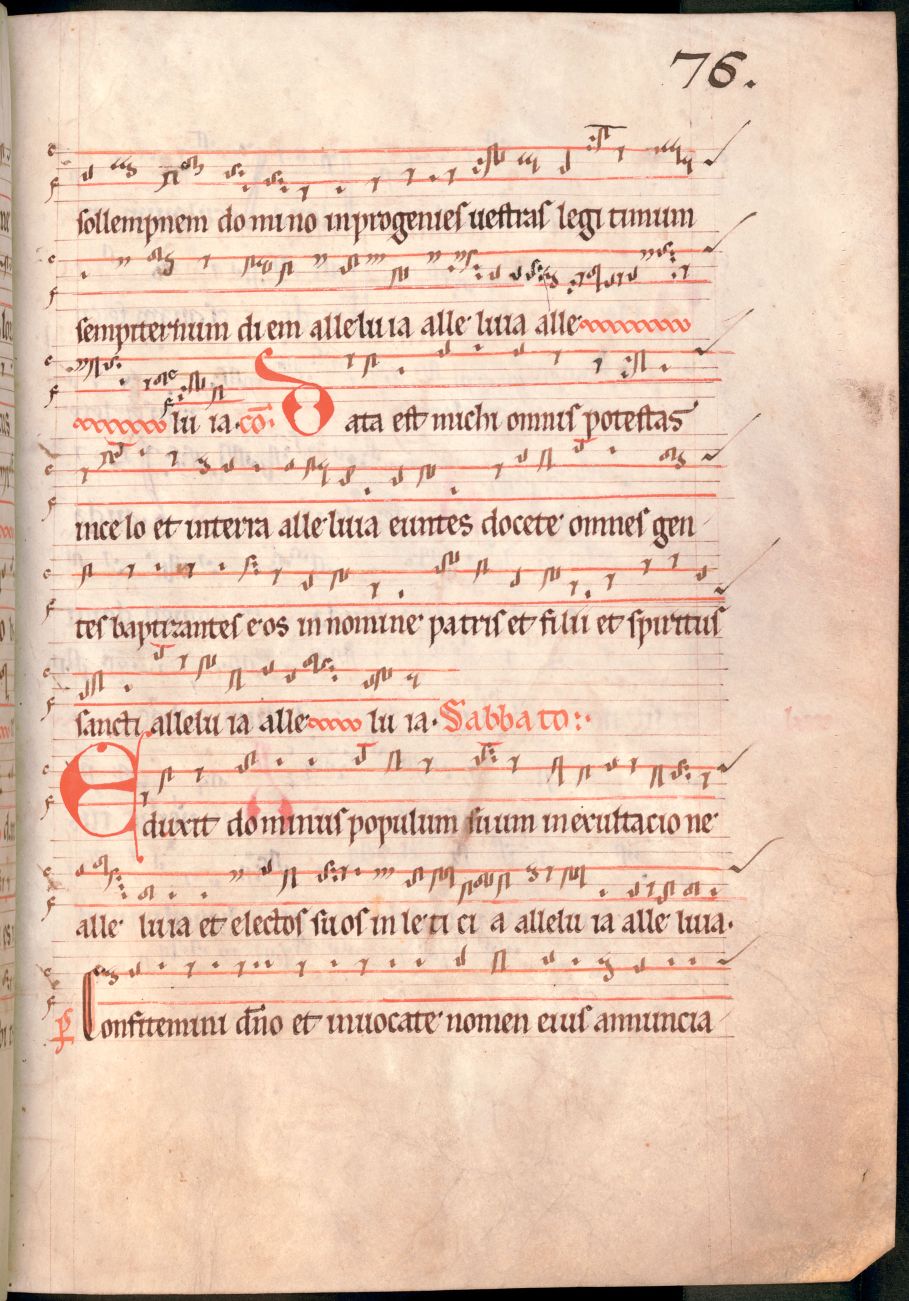 76.
sollempnem do mi no in progenies uestras legi timum
sempiternum di em allelu ia alle luia alle
lu ia. co. Data est michi omnis potestas
in ce lo et in terra alle luia euntes docete omnes gen
tes baptizantes e os in nomine patris et filii et spiritus
sancti allelu ia alle lu ia. Sabbato:
Eduxit dominus populum suum in exultacio ne
alle luia et electos suos in le ti ci a allelu ia alle luia.
Ps Confitemini dño et inuocate nomen eius annuncia